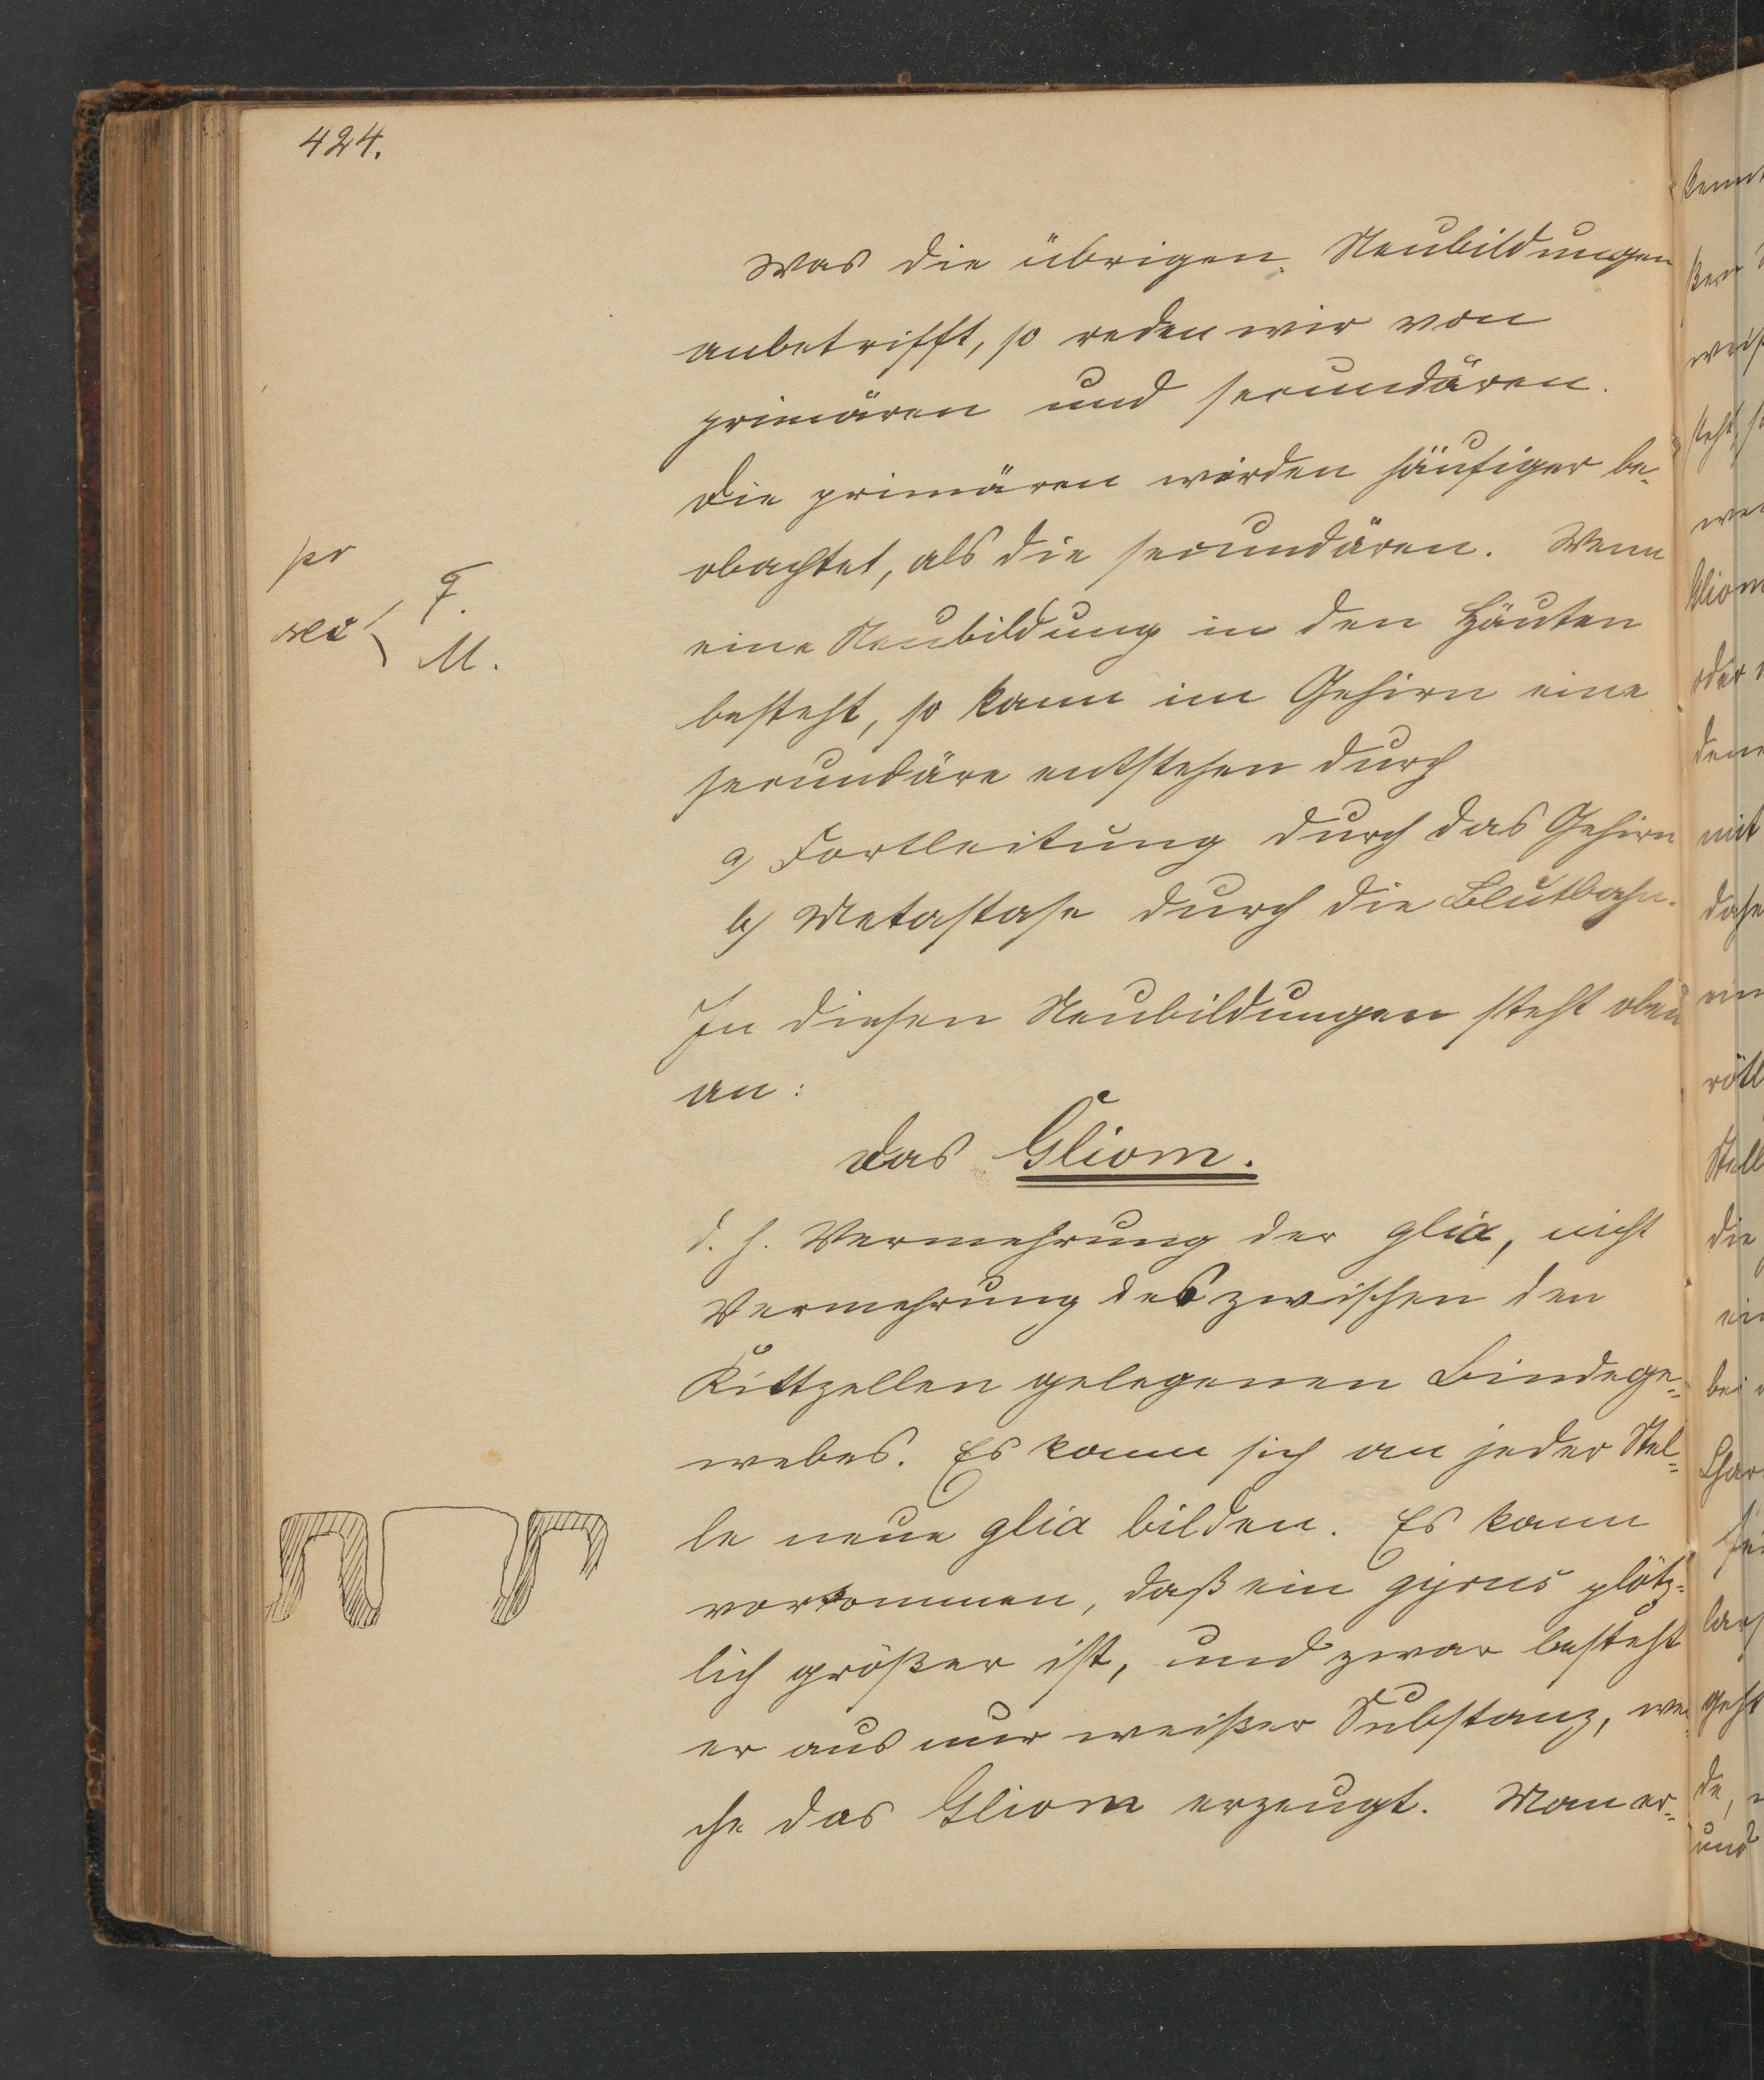 424.
Was die übrigen Neubildungen
anbetrifft, so reden wir von
primären und secundären.
Die primären werden häufiger be-
obachtet, als die secundären. Wenn
eine Neubildung in den Häuten
besteht, so kann im Gehirn eine
secundäre entstehen durch
a) Fortleitung durch das Gehirn
b) Metastase durch die Blutbahn.
pr
sec
F.
M.
In diesen Neubildungen steht oben
an:
das Gliom.
d. h. Vermehrung der glia, nicht
Vermehrung des zwischen den
Kittzellen gelegenen Bindege=
webes. Es kann sich an jeder Stel=
le neue glia bilden. Es kann
vorkommen, daß ein gyrus plötz=
lich größer ist, und zwar besteht
er aus nur weißer Substanz, wel
che das Gliom erzeugt. Man er=